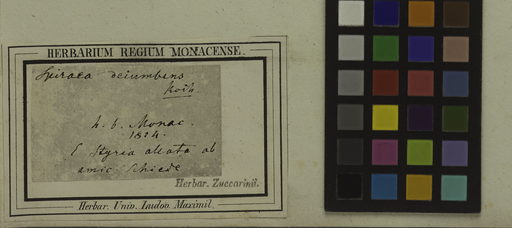 HERBARIUM REGIUM MONACENSE.
Spiraea decumbens
Koch.
h. b. Monac.
1824.
E Styria allata ab
amic. Schiede
Herbar. Zuccarinii.
Herbar. Univ. Ludov. Maximil.